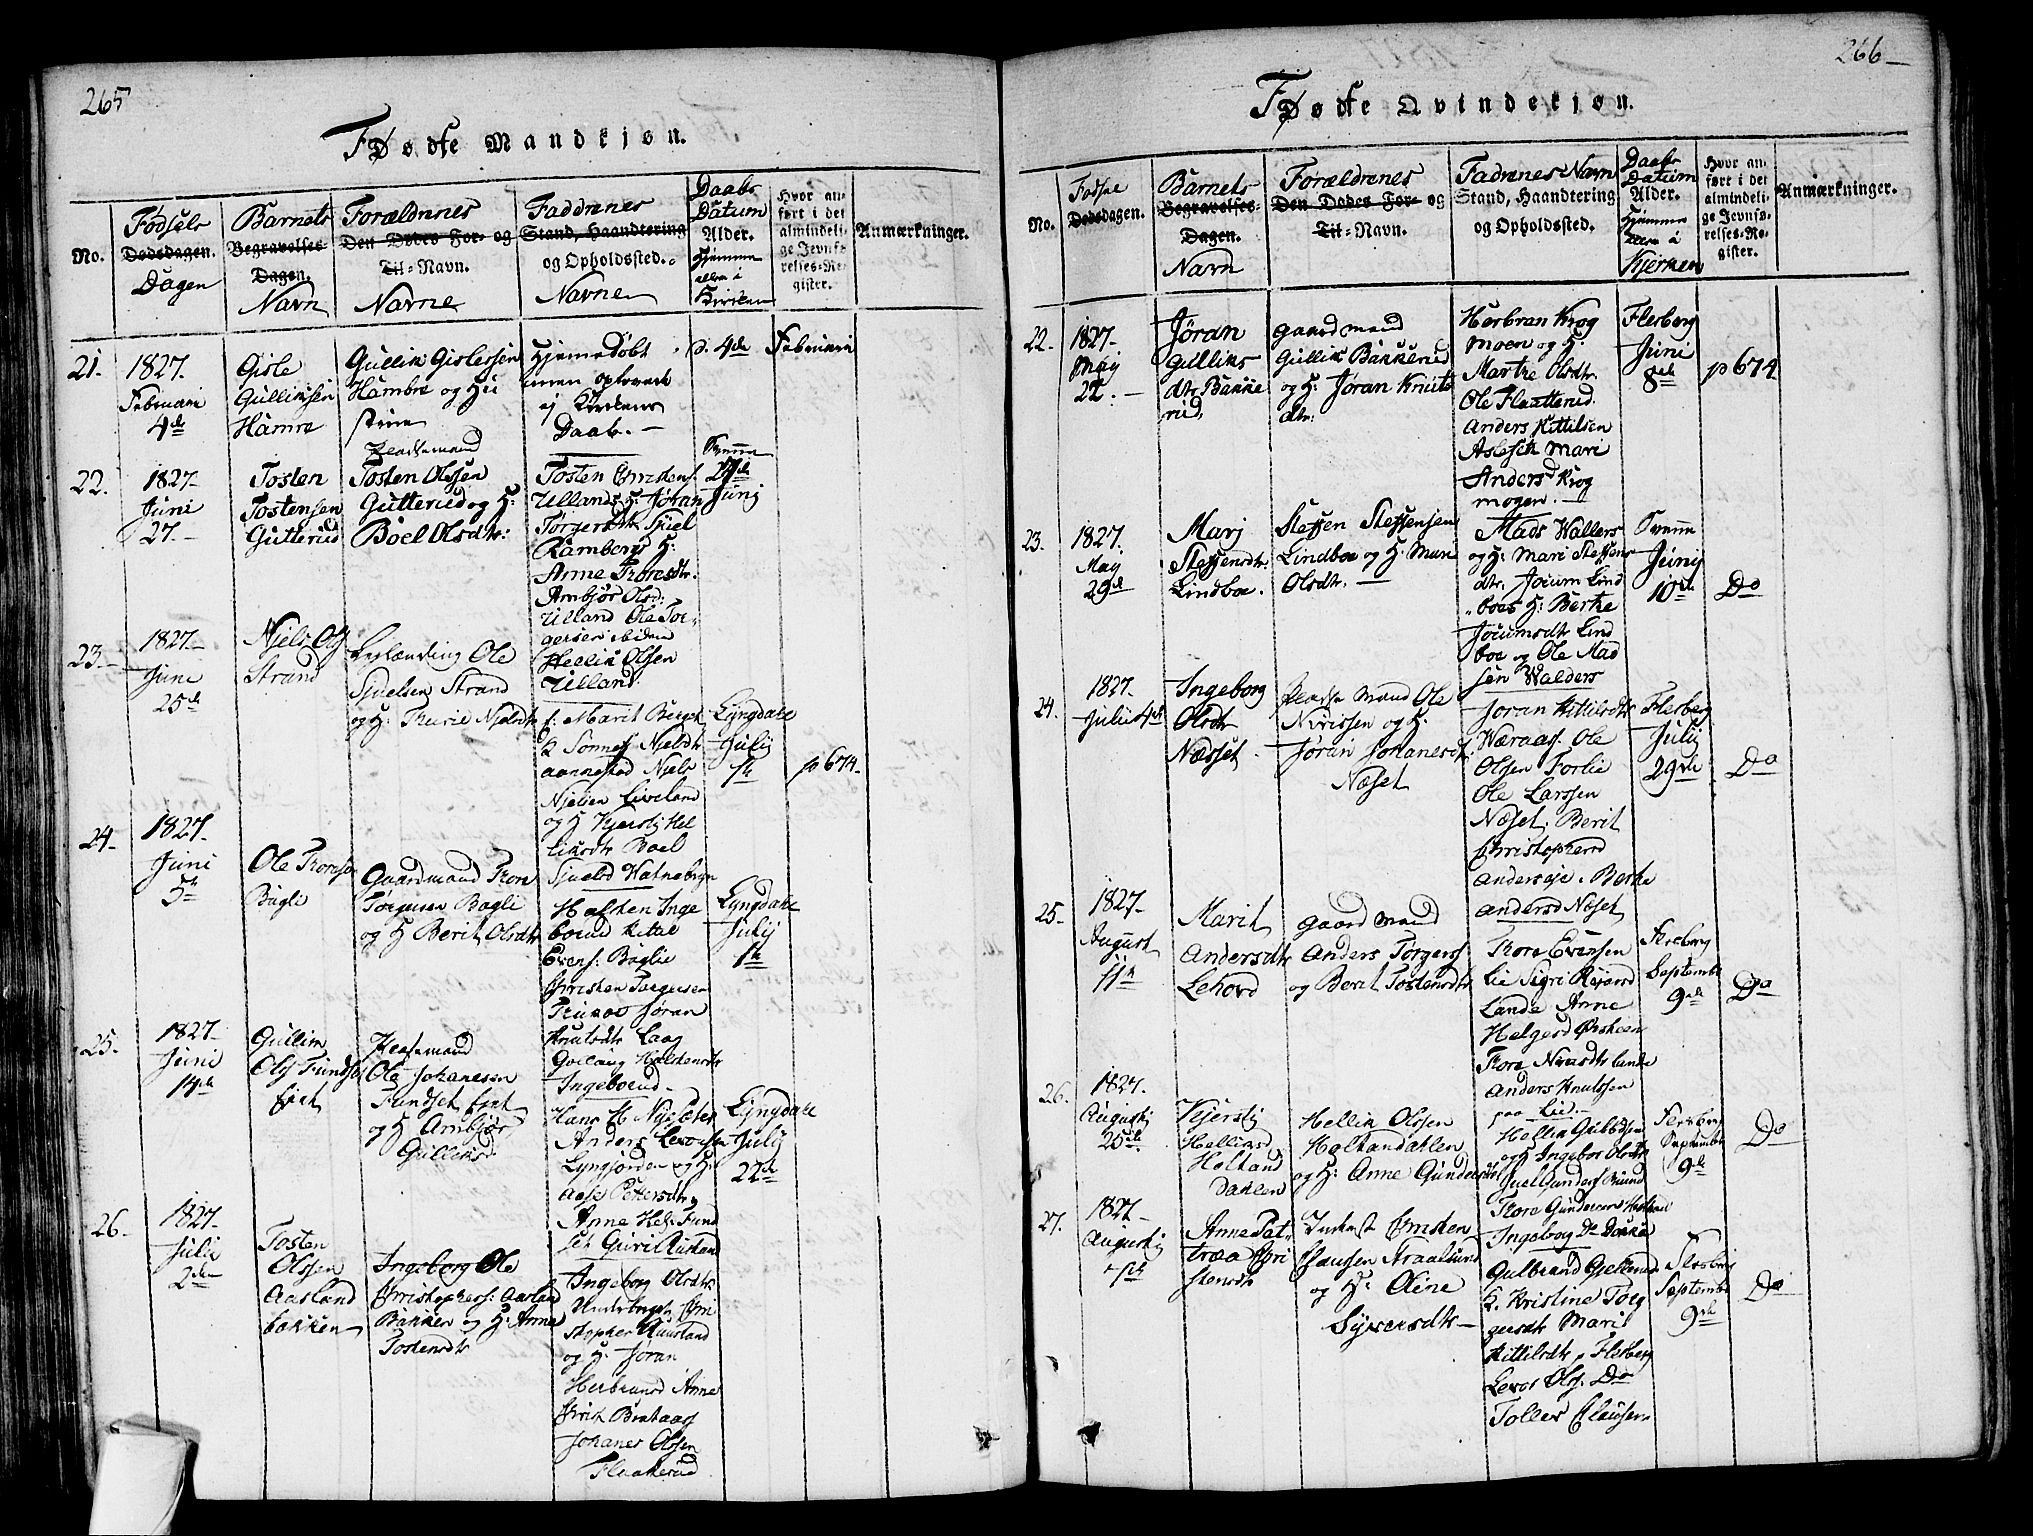 265
Fødte Mandkjøn.
No.
Fødsels
Dødsdagen.
Dagen
Barnets
Begravelses-
Dagen.
Navn
Forældrenes
Den Dødes For- og
Til-Navn.
Navne
Faddrenes
Stand, Haandtering
og Opholdssted.
Navne
Daabs
Datum
Alder.
Hjemme
eller i
Kirken
Hvor an-
ført i det
almindeli-
ge Jevnfø-
relses-Re-
gister.
Anmærkninger.
21.
1827.
Februari
4de
Gisle
Gulliksen
Hamre
Gullik Gislesen
Hambre og Hu
strue
Hjemedøbt
men
ej Kirkens
Daab.
d. 4de
Februari
22.
1827
Juni
27.
Tosten
Tostensen
Gutterud
Pladsemand
Tosten Olssen
Gutterud og H:
Boel Olsdtr:
Tosten Christens.
Ullands H: Jøran
Torgersdtr Sjuel
Rambergs H:
Anne Thoresdtr.
Ambjør Olsd:
Ulland Ole Tor-
gersen ibidem
Hellik Olsen
Ulland
Svenne
27de
Junj
23.
1827
June
25de
Niels Ols
Strand
Ole
Sjuelsen Strand
og H: Thurie Njelsdtr
f: Marit Bergst
Q Sonnes Njelsdtr
aannestad Niels
Njelsen Liveland
og H Kjersti Hel
liksdtr Boel
Sjuelsd Hatnebryn
Lyngdale
Julij
1te
p 674.
24
1827
Juni
5te
Ole Thoresen
Bagli
Gaardmand Thore
Torgersen Bagli
og H Berit Olsdtr
Halsten Inge
boerud Kittel
Evens: Baglie
Christen Torgersen
Jøran
Knutsdtr Laag
Goelaug Haldensdtr
Ingeboerud
Lyngdale
Julij
1te
25.
1827
Juni
14de
Gullik
Ols Fundset
ejet
Pladsemand
Ole Johanesen
Fundset ejet
og H Ambjør
Gulliksd
Hans H
Anders
Lyngjorden og H:
Aase Pettersdtr
Anne Hels: Fund
set Guri Ruseland
Lyngdale
Julij
22de
26
1827
Julii
2den
Tosten
Olssen
Aasland
bakken
Ingeborg Ole
Christophers: Aasland
Bakken og H: Anne
Tostensdtr
Ingeborg Olsdtr
Chri
stopher Ruusland
og H: Jøran
Herbransd Anne
Christ Brataas
Johanes Olssen
Flaakerud
266
Fødte Qvindekjøn.
No.
Fødsel
Dødsdagen.
Barnets
Begravelses-
Dagen.
Navn
Forældrenes
Den Dødes For- og
Til-Navn.
Fadrenes Navn
Stand, Haandtering
og Opholdssted.
Daabs
Datum
Alder.
Hjemme
eller i
Kjerken
Hvor an-
ført i det
almindeli-
ge Jevnfø-
relses-Re-
gister.
Anmærkninger.
22.
1827
May
22.
Jøran
Gulliks
dtr Bakke
rud,
Gaardmand
Gullik Bakkerud
og H: Jøran Knuts
dtr.
Herbran Krog
moen og H:
Marthe Olsdtr.
Ole Flaatterud
Anders Kittilsen
Aslesett Mari
Andersd Krog
mogen.
Flesberg
Juni
8de
p 674
23.
1827.
May
29de
Marj
Steffensdtr.
Lindboe.
Steffen Steffensen
Lindboe og H: Mari
Olsdtr.
Mads Wallers
og H: Mari Steffens
dtr. Joeum Lind
boes H: Berthe
Joeumsdtr Lind
boe og Ole Mad
sen Walders
Svenne
Junij
10de
Do
24.
1827.
Julii 4de
Ingeborg
Olsdtr
Næsset
Pladse Mand Ole
Nirissen og H:
Jøran Johanesdtr
Næset
Joran Kittilsdtr
Wæraas Ole
Olsen Forlie
Ole Larssen
Næset. Berit
Christophersd
Anderseje. Berthe
Andersd Næset
Flesberg
Julij
29de
Do
25.
1827
August
11te
Marit
Andersdtr
Lehovd
Gaardmand
Anders Torgers
og Berit Tostensdtr
Thore Evensen
Lie Sigri Roarsd
Lande Anne
Helgesd
Thore Nirisdtr Lande
Anders Knutssen
paa Lie
Flesberg
September
9de
Do
26.
1827.
Augustij
25de
Kjersti
Helliksd
Holtand
Dahlen
Hellik Olssen
Holtandahlen
og H: Anne Gundersdtr
Hellik Gulbdsen
og H Ingebor Olsdtr
Juel Gunders
Thore Gundersen
Ingeborg Do
Flesberg
September
9de
Do
27.
1827
Augustij
Anne Pet
træa Chri
stensdtr
Inderst Christen
Clausen Straalsund
og H: Oline
Syversdtr
Gulbrand Gjellerud
Q. Kristine Torg
gersdtr Mari
Kittilsdtr. Flesberg
Levor Ols. Do
Tolles Clausen
Flesberg
September
9de
Do